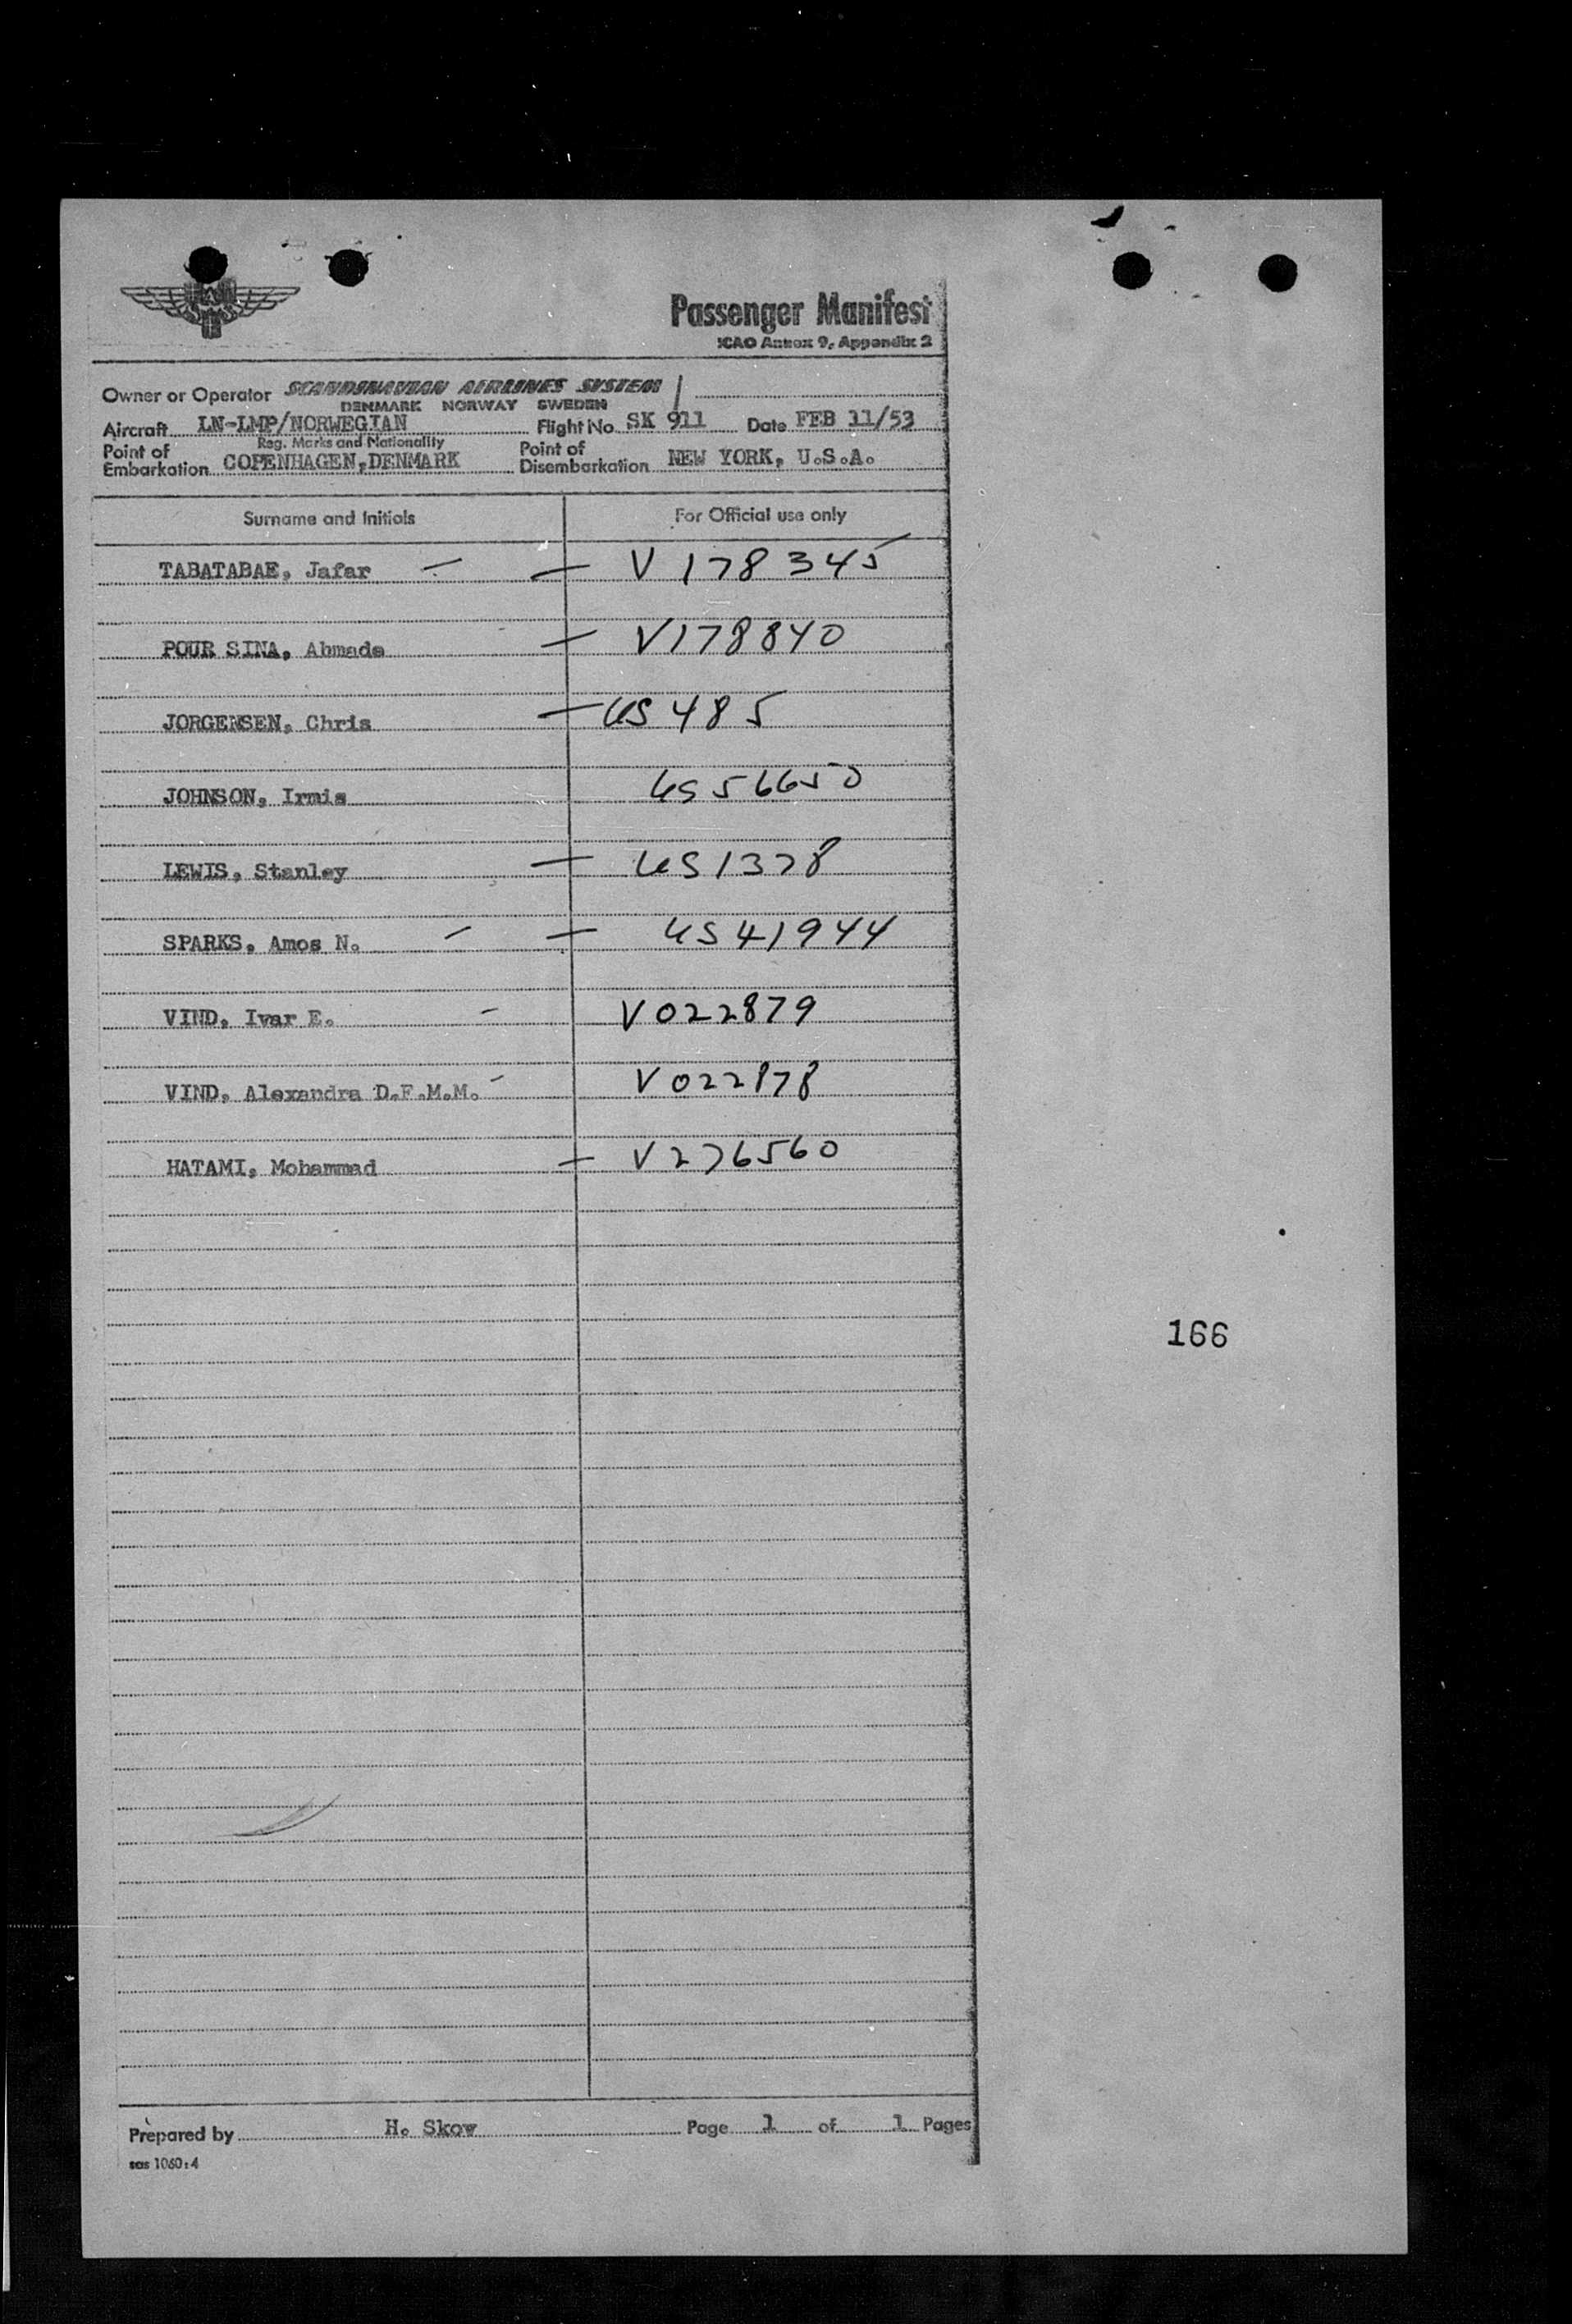 Passenger Manifest
ICAO Annex 9, Appendix 2
Owner or Operator SCANDINAVIAN AIRLINES SYSTEM
DENMARK NORWAY SWEDEN
Aircraft LN-LMP/NORWEGIAN Flight No. SK 911 Date FEB 11/53
Reg. Marks and Nationality
Point of Embarkation COPENHAGEN, DENMARK Point of Disembarkation NEW YORK, U.S.A.
Surname and Initials For Official use only
TABATABAE, Jafar — — V 178345
POUR SINA, Ahmade — V178840
JORGENSEN, Chris — US 485
JOHNSON, Irmis US 56650
LEWIS, Stanley — US 1378
SPARKS, Amos N. — — US 41944
VIND, Ivar E. — V 022879
VIND, Alexandra D.F.M.M. — V 022878
HATAMI, Mohammad — V 276560
166
Prepared by H. Skow Page 1 of 1 Pages
sas 1060:4